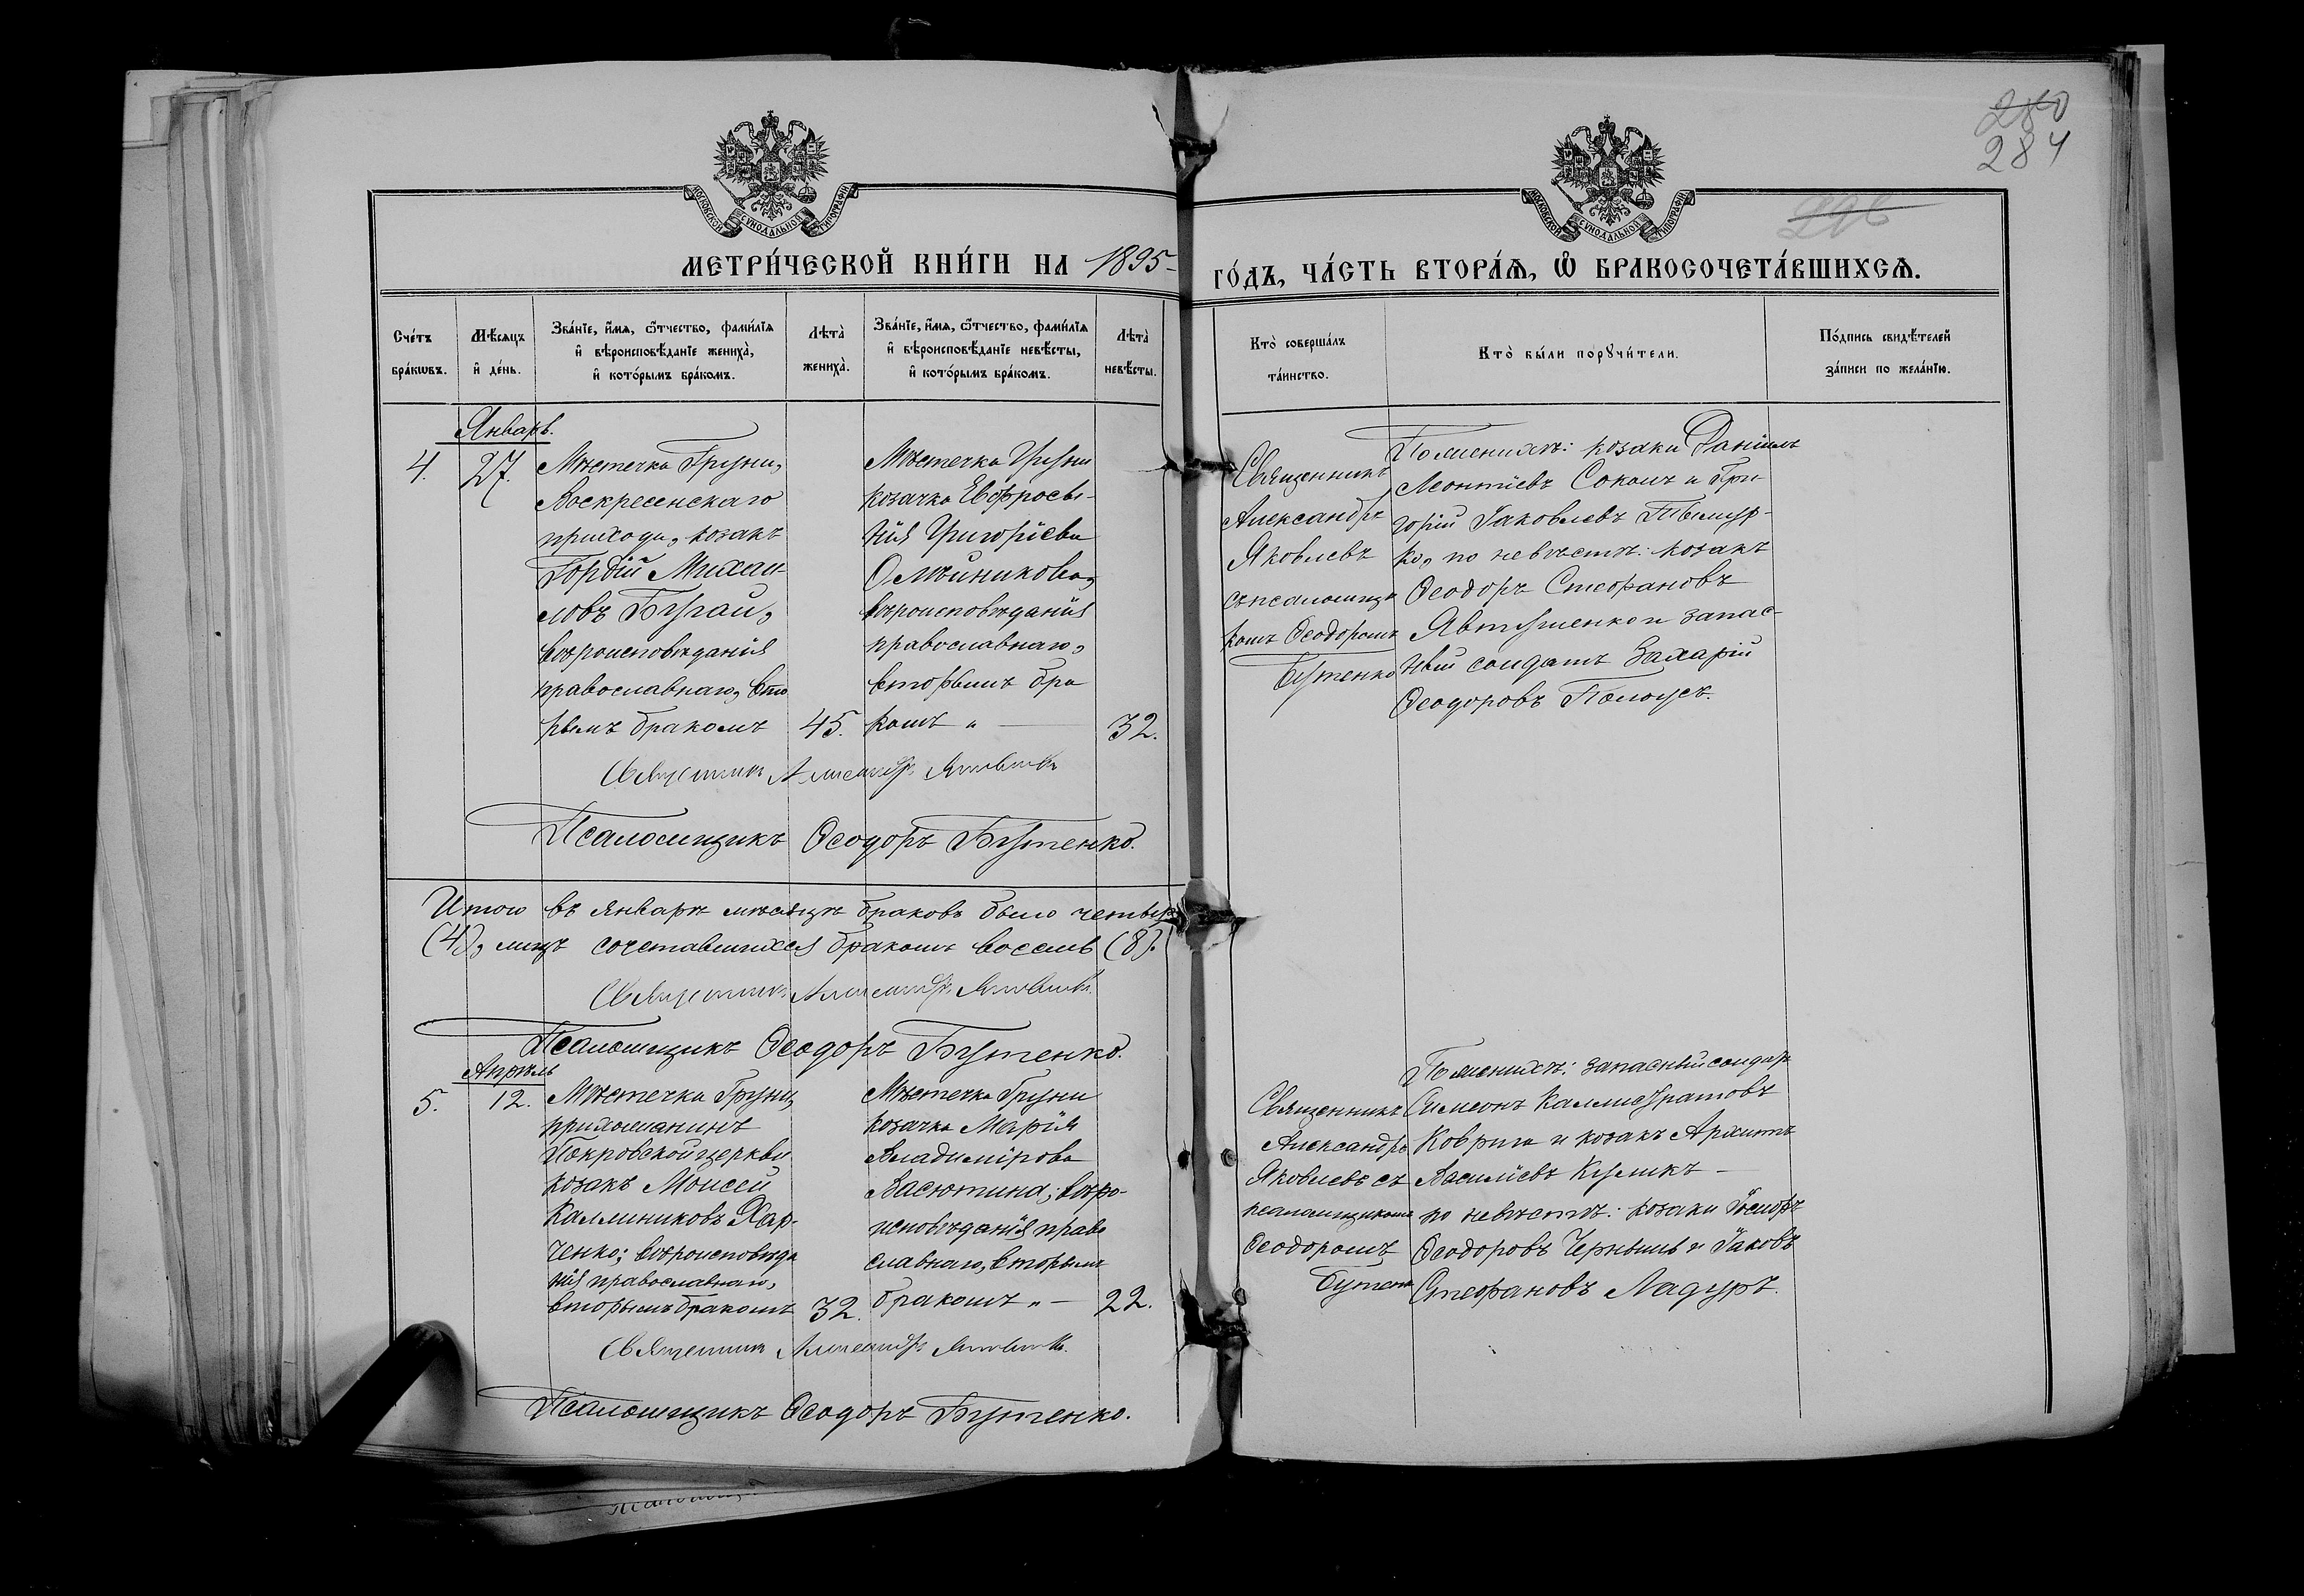 280
284
МОСКОВСКОЙ СѴНОДАЛЬНОЙ ТИПОГРАФІИ
МОСКОВСКОЙ СѴНОДАЛЬНОЙ ТИПОГРАФІИ
МЕТРИ́ЧЕСКОЙ КНИ́ГИ НА 1895-
ГО́ДЪ, ЧА́СТЬ ВТОРА́Ѧ, Ѽ БРАКОСОЧЕТА́ВШИХСѦ.
Сче́тъ
бра́кѡвъ.
Мѣ́сѧцъ
и҆ де́нь.
Зва́нїе, и҆́мѧ, ѻ҆́тчество, фами́лїѧ
и҆ вѣроисповѣ́данїе жениха̀,
и҆ кото́рымъ бра́комъ.
Лѣта̀
жениха̀.
Зва́нїе, и҆́мѧ, ѻ҆́тчество, фами́лїѧ
и҆ вѣроисповѣ́данїе невѣ́сты,
и҆ кото́рымъ бра́комъ.
Лѣта̀
невѣ́сты.
Кто̀ соверша́лъ
та́инство.
Кто̀ бы́ли порꙋчи́тели.
По́дпись свидѣ́телей
за́писи по жела́нїю.
Январь.
4.
27.
Мѣстечка Груни,
Воскресенскаго
прихода, козакъ
Гордій Михаи-
ловъ Бугай,
вѣроисповѣданія
православнаго, вто
рымъ бракомъ
45.
Мѣстечка Груни
козачка Евфроси-
нія Григоріева
Олѣйникова,
вѣроисповѣданія
православнаго,
вторымъ бра
комъ „ —
32.
Священникъ
Александръ
Яковлевъ
съ псаломщи
комъ Ѳеодоромъ
Бутенко
По женихѣ: козаки Даніилъ
Леонтіевъ Соколъ и Гри-
горій Іаковлевъ
ко, по невѣстѣ: козакъ
Ѳеодоръ Стефановъ
Явтушенко и запас-
ный солдатъ Захарій
Ѳеодоровъ Полоусъ.
Священникъ Александръ Яковлевъ
Псаломщикъ Ѳеодоръ Бутенко.
Итого въ январѣ мѣсяцѣ браковъ было четыре
(4), лицъ сочетавшихся бракомъ восемь (8).
Священникъ Александръ Яковлевъ.
Псаломщикъ Ѳеодоръ Бутенко.
Апрѣль
5.
12.
Мѣстечка Груни,
прихожанинъ
Покровской церкви
козакъ Моисей
Каллиниковъ Хар-
ченко; вѣроисповѣда
нія православнаго,
вторымъ бракомъ
32.
Мѣстечка Груни
козачка Марія
Владимірова
Васютина; вѣро-
исповѣданія право
славнаго, вторымъ
бракомъ „ —
22.
Священникъ
Александръ
Яковлевъ съ
псаломщикомъ
Ѳеодоромъ
Бутенк
По женихѣ: запасный солдатъ
Симеонъ Каллистратовъ
Коврига и козакъ Архиппъ
Василіевъ Куликъ —
по невѣстѣ: козаки
Ѳеодоровъ Чернышъ и Іаковъ
Стефановъ Ладуръ.
Священникъ Александръ Яковлевъ.
Псаломщикъ Ѳеодоръ Бутенко.